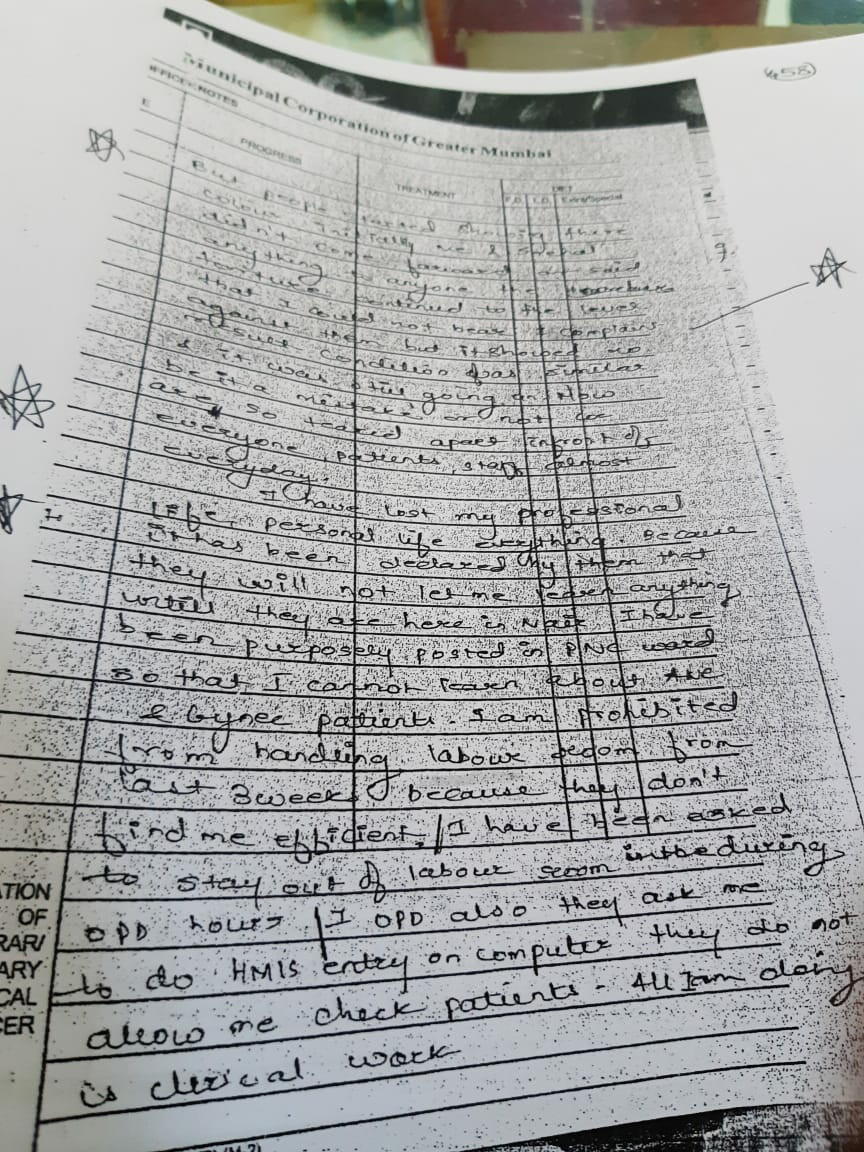 458
Municipal Corporation of Greater Mumbai
OFFICE NOTES
E
PROGRESS
TREATMENT
DIET
F.D. L.D. Extra/Special
But people started showing there
colour initially me & Snehal
didn't come forward or said
anything to anyone the
torture continued to the level
that I could not bear I complains
against them but it showed no
result condition was similar
& it was still going on Now
be it a mistake or not we
are so teared apart infront of
everyone, patients, staff almost
everyday.
I have lost my professional
life, personal life everything. Because
it has been declared by them that
they will not let me learn anything
untill they are here in Nair. I have
been purposely posted in PNC ward
so that I cannot learn about ANC
& Gynec patients. I am prohibited
from handling labour room from
last 3 weeks because they don't
find me efficient. I have been asked
to stay out of labour room during
OPD hours I OPD also they ask me
to do HMIS entry on computer they do not
allow me check patients - All I am doing
is clerical work
ATION
OF
RAR/
ARY
CAL
CER